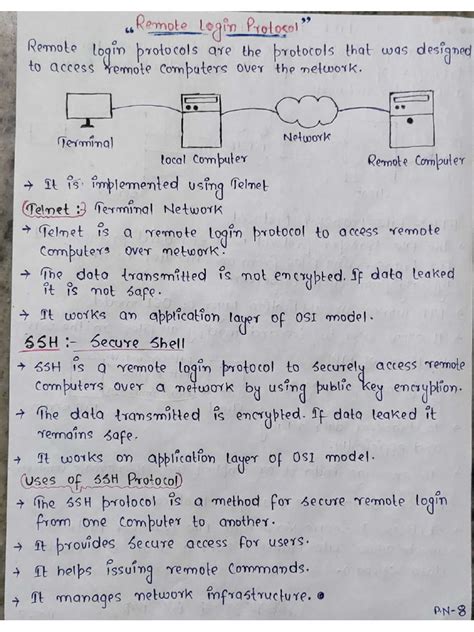 "Remote Login Protocol"
Remote login protocols are the protocols that was designed
to access remote computers over the network.
Terminal
local Computer
Network
Remote Computer
→ It is implemented using Telnet
Telnet :- Terminal Network
→ Telnet is a remote login protocol to access remote
Computers over network.
→ The data transmitted is not encrypted. If data leaked
it is not safe.
→ It works an application layer of OSI model.
SSH :- Secure Shell
→ SSH is a remote login protocol to securely access remote
Computers over a network by using public key encryption.
→ The data transmitted is encrypted. If data leaked it
remains safe.
→ It works on application layer of OSI model.
Uses of SSH Protocol
→ The SSH protocol is a method for secure remote login
from one computer to another.
→ It provides secure access for users.
→ It helps issuing remote Commands.
→ It manages network infrastructure.
P.N-8